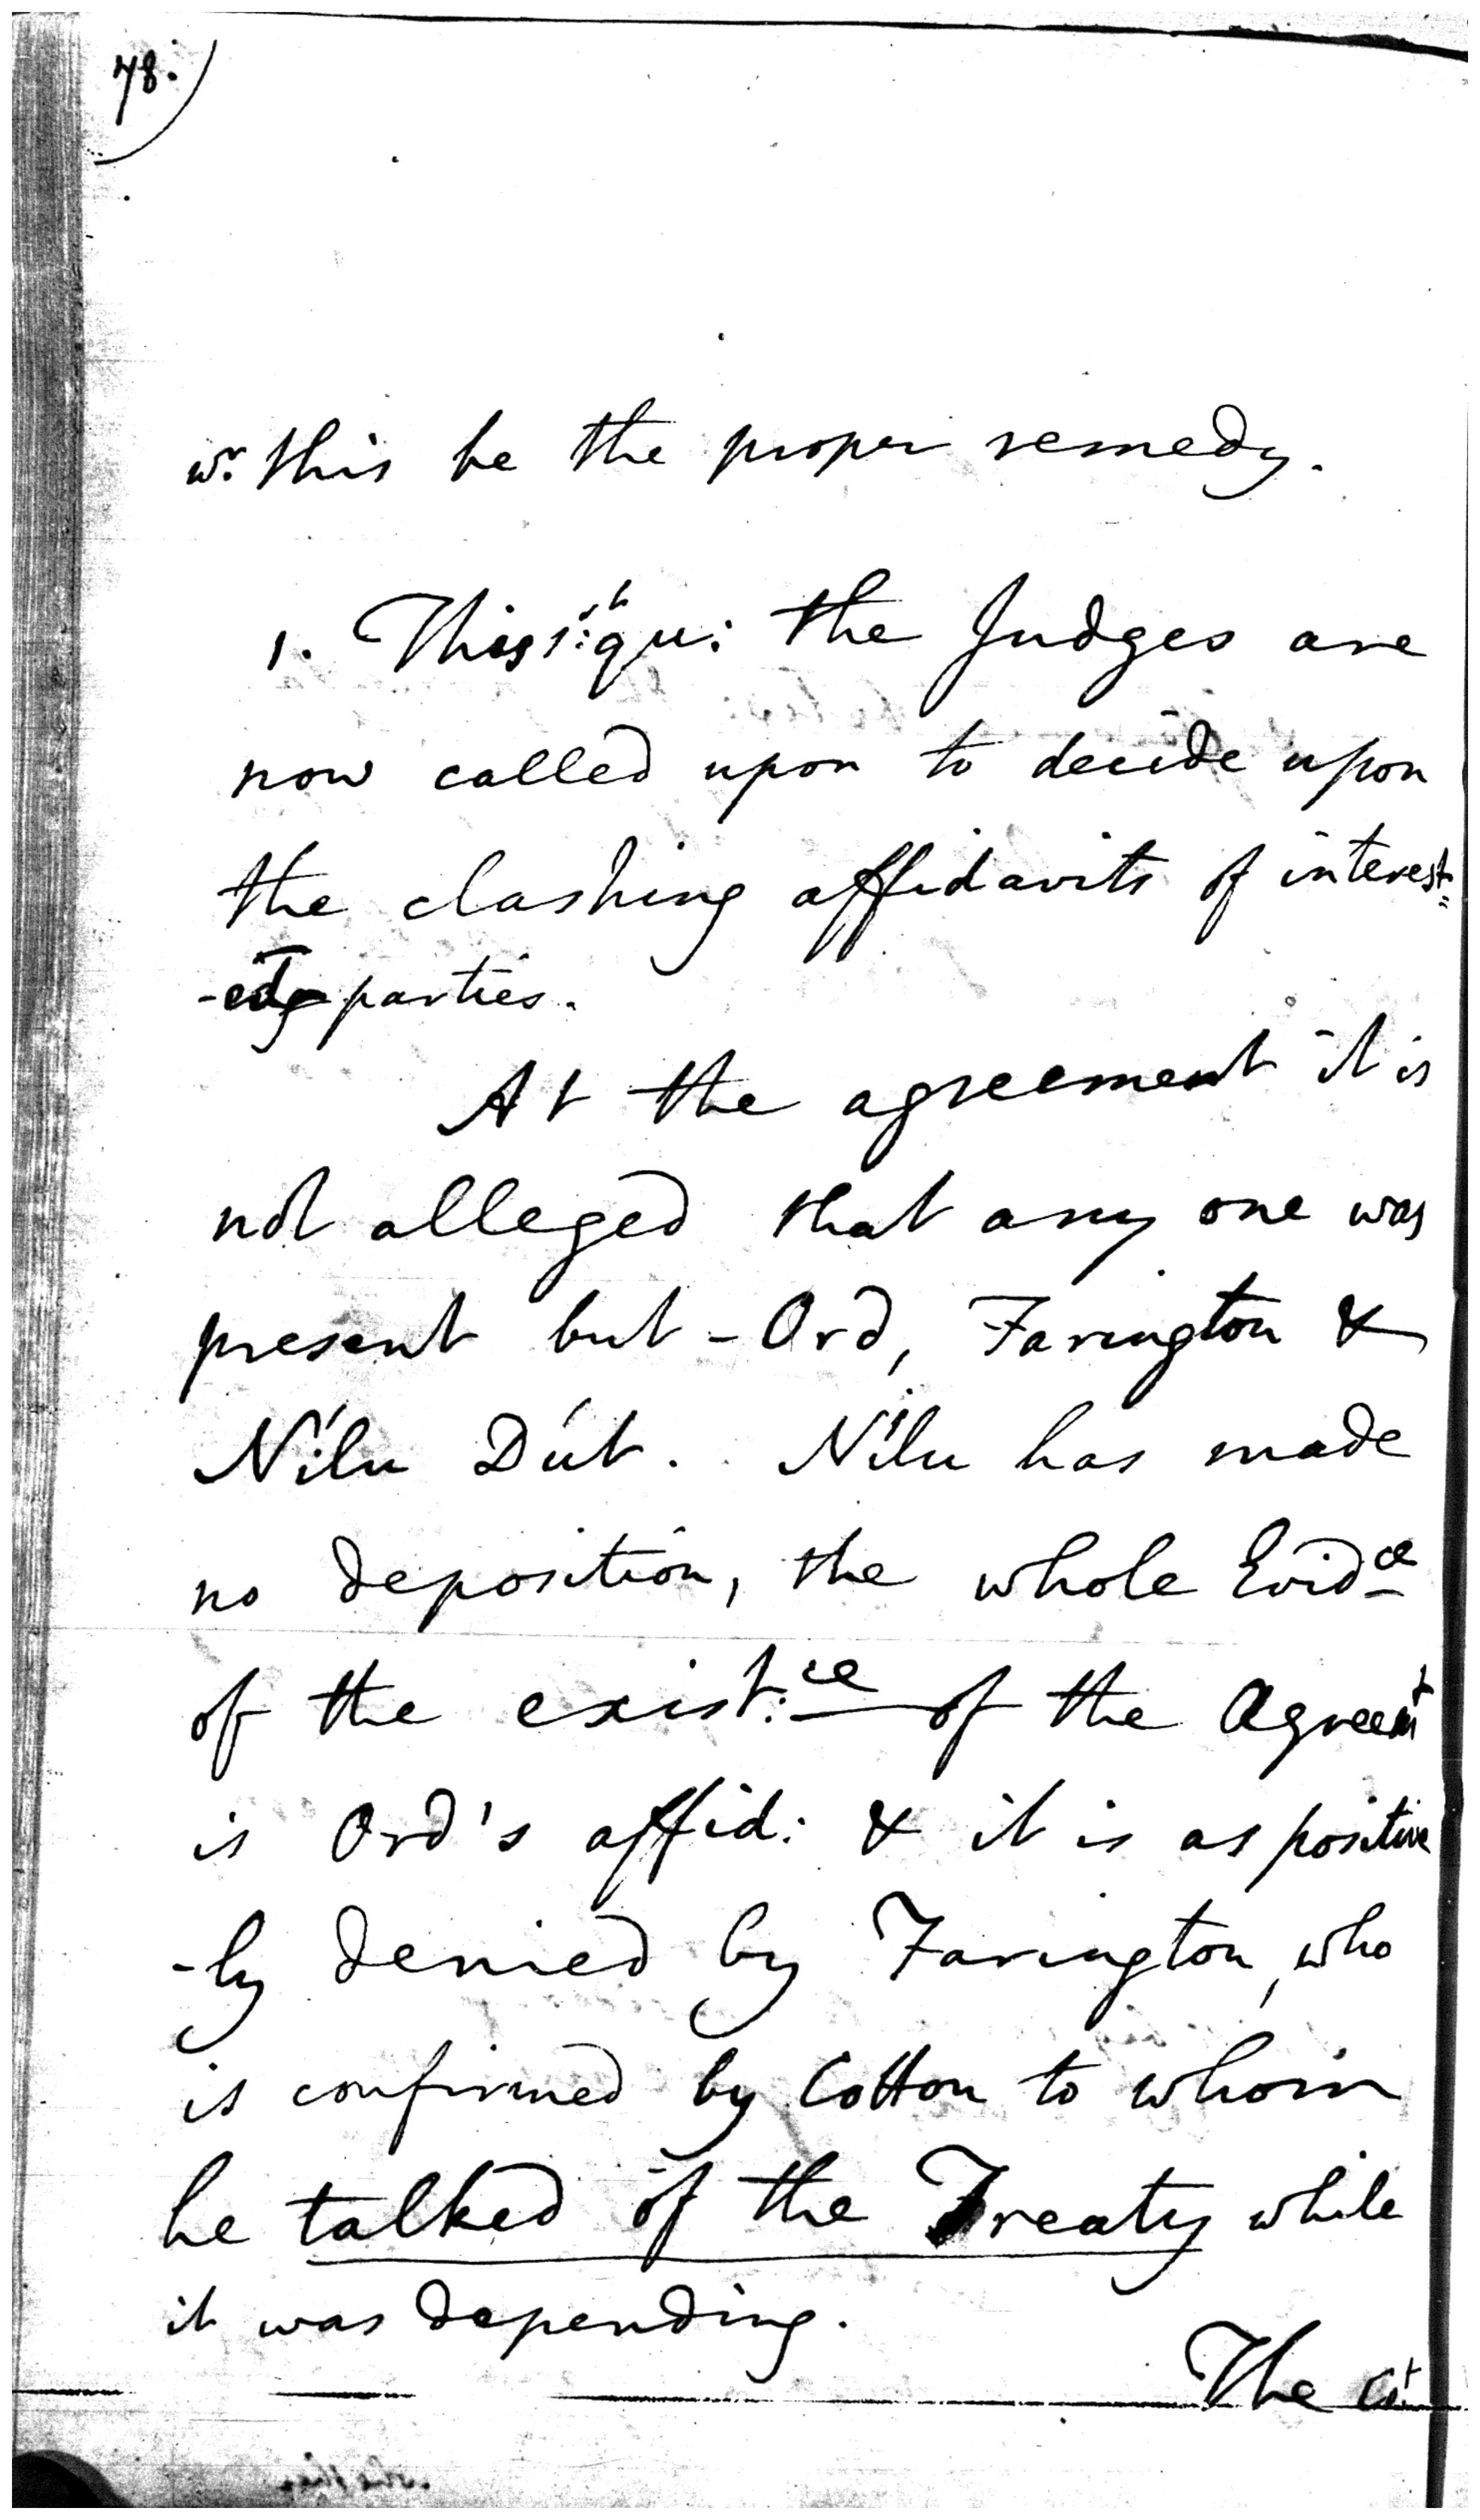 78.
wr. this be the proper remedy.
1. This 1:st qu: the Judges are
now called upon to decide upon
the clashing affidavits of interest=
-ed parties.
At the agreement it is
not alleged that any one was
present but - Ord, Farington &
Nílu Dút. Nílu has made
no deposition, the whole Evidce
of the exist:ce of the Agreemt
is Ord's affid: & it is as positive
-ly denied by Farington, who
is confirmed by Cotton to whom
he talked of the Treaty while
it was depending.
The Ct